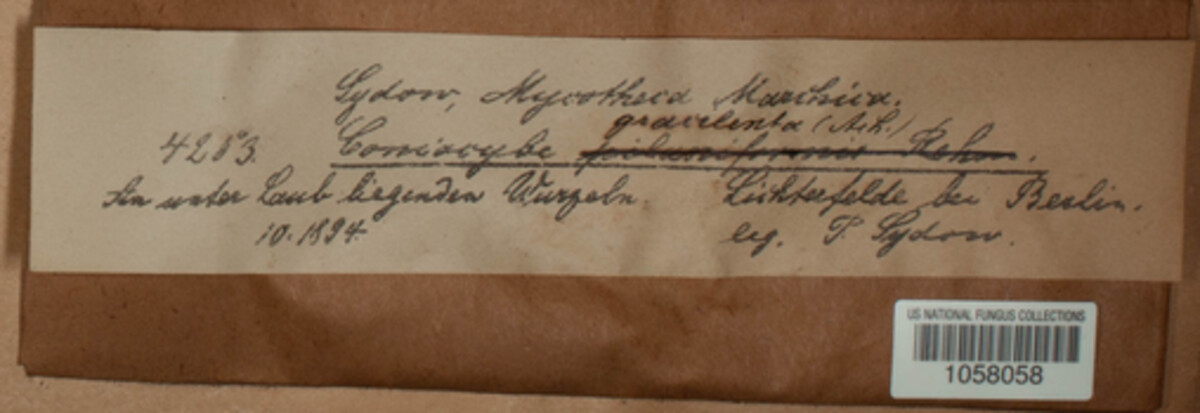 Sydow, Mycotheca Marchica.
gracilenta (Ach.)
4283. Coniocybe pilacriformis Rehm.
An unter Laub liegenden Wurzeln. Lichterfelde bei Berlin.
10.1894. leg. P. Sydow.
US NATIONAL FUNGUS COLLECTIONS
1058058